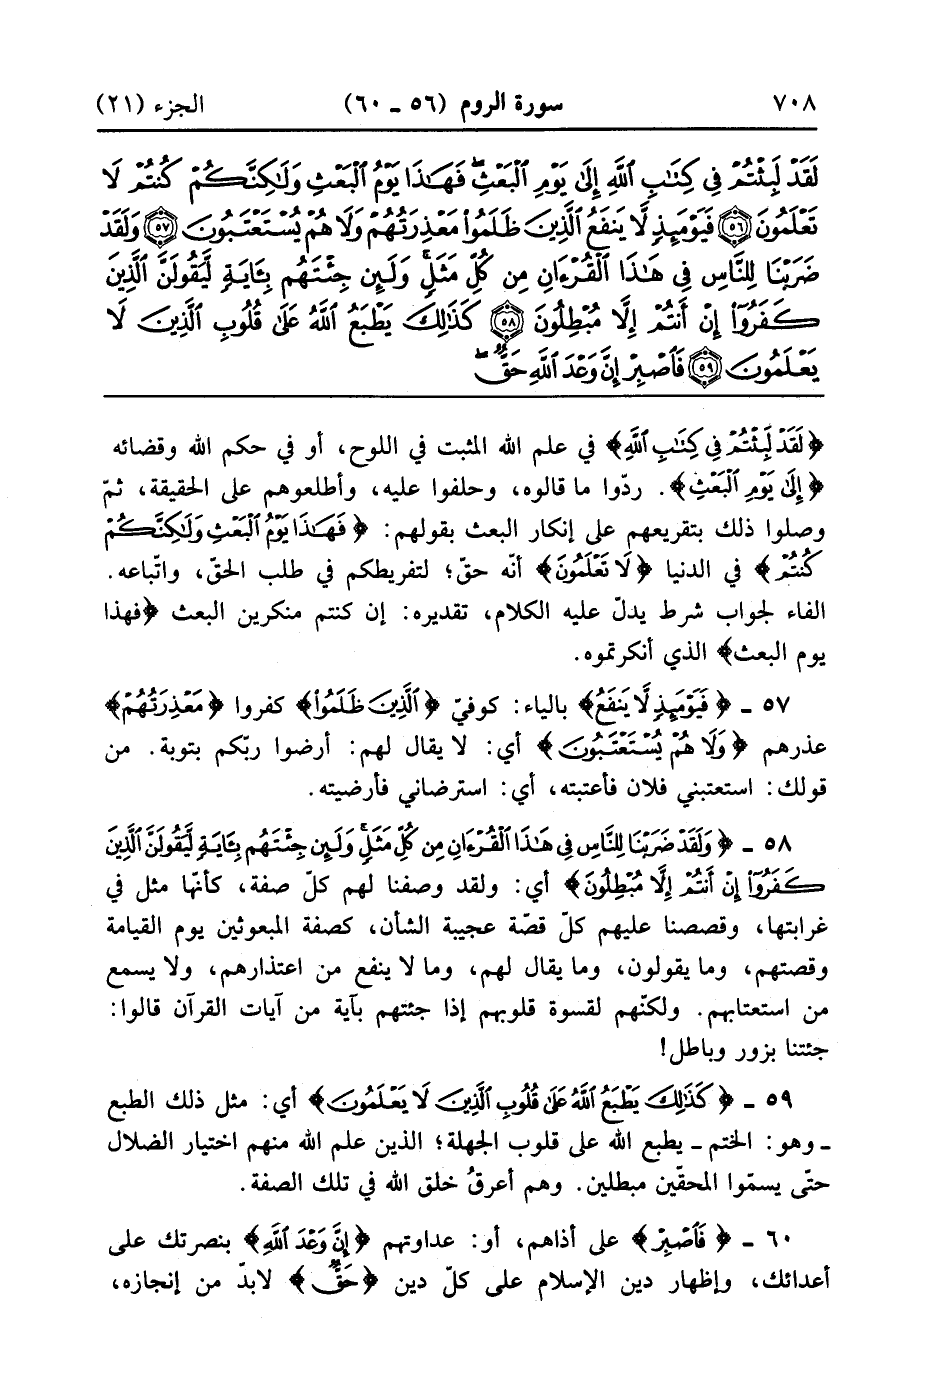 ٧٠٨ سورة الروم (٥٦ ـ ٦٠) الجزء (٢١)
لَقَدْ لَبِثْتُمْ فِى كِتَٰبِ ٱللَّهِ إِلَىٰ يَوْمِ ٱلْبَعْثِۖ فَهَٰذَا يَوْمُ ٱلْبَعْثِ وَلَٰكِنَّكُمْ كُنتُمْ لَا
تَعْلَمُونَ ﴿٥٦﴾ فَيَوْمَئِذٍ لَّا يَنفَعُ ٱلَّذِينَ ظَلَمُوا۟ مَعْذِرَتُهُمْ وَلَا هُمْ يُسْتَعْتَبُونَ ﴿٥٧﴾ وَلَقَدْ
ضَرَبْنَا لِلنَّاسِ فِى هَٰذَا ٱلْقُرْءَانِ مِن كُلِّ مَثَلٍۚ وَلَئِن جِئْتَهُم بِـَٔايَةٍ لَّيَقُولَنَّ ٱلَّذِينَ
كَفَرُوٓا۟ إِنْ أَنتُمْ إِلَّا مُبْطِلُونَ ﴿٥٨﴾ كَذَٰلِكَ يَطْبَعُ ٱللَّهُ عَلَىٰ قُلُوبِ ٱلَّذِينَ لَا
يَعْلَمُونَ ﴿٥٩﴾ فَٱصْبِرْ إِنَّ وَعْدَ ٱللَّهِ حَقٌّۖ
﴿لَقَدْ لَبِثْتُمْ فِى كِتَٰبِ ٱللَّهِ﴾ في علم الله المثبت في اللوح، أو في حكم الله وقضائه
﴿إِلَىٰ يَوْمِ ٱلْبَعْثِ﴾. ردّوا ما قالوه، وحلفوا عليه، وأطلعوهم على الحقيقة، ثمّ
وصلوا ذلك بتقريعهم على إنكار البعث بقولهم: ﴿فَهَٰذَا يَوْمُ ٱلْبَعْثِ وَلَٰكِنَّكُمْ
كُنتُمْ﴾ في الدنيا ﴿لَا تَعْلَمُونَ﴾ أنّه حقّ؛ لتفريطكم في طلب الحقّ، واتّباعه.
الفاء لجواب شرط يدلّ عليه الكلام، تقديره: إن كنتم منكرين البعث ﴿فهذا
يوم البعث﴾ الذي أنكرتموه.
٥٧ ـ ﴿فَيَوْمَئِذٍ لَّا يَنفَعُ﴾ بالياء: كوفيّ ﴿ٱلَّذِينَ ظَلَمُوا۟﴾ كفروا ﴿مَعْذِرَتُهُمْ﴾
عذرهم ﴿وَلَا هُمْ يُسْتَعْتَبُونَ﴾ أي: لا يقال لهم: أرضوا ربّكم بتوبة. من
قولك: استعتبني فلان فأعتبته، أي: استرضاني فأرضيته.
٥٨ ـ ﴿وَلَقَدْ ضَرَبْنَا لِلنَّاسِ فِى هَٰذَا ٱلْقُرْءَانِ مِن كُلِّ مَثَلٍۚ وَلَئِن جِئْتَهُم بِـَٔايَةٍ لَّيَقُولَنَّ ٱلَّذِينَ
كَفَرُوٓا۟ إِنْ أَنتُمْ إِلَّا مُبْطِلُونَ﴾ أي: ولقد وصفنا لهم كلّ صفة، كأنّها مثل في
غرابتها، وقصصنا عليهم كلّ قصّة عجيبة الشأن، كصفة المبعوثين يوم القيامة
وقصتهم، وما يقولون، وما يقال لهم، وما لا ينفع من اعتذارهم، ولا يسمع
من استعتابهم. ولكنّهم لقسوة قلوبهم إذا جئتهم بآية من آيات القرآن قالوا:
جئتنا بزور وباطل!
٥٩ ـ ﴿كَذَٰلِكَ يَطْبَعُ ٱللَّهُ عَلَىٰ قُلُوبِ ٱلَّذِينَ لَا يَعْلَمُونَ﴾ أي: مثل ذلك الطبع
ـ وهو: الختم ـ يطبع الله على قلوب الجهلة؛ الذين علم الله منهم اختيار الضلال
حتّى يسمّوا المحقّين مبطلين. وهم أعرقُ خلق الله في تلك الصفة.
٦٠ ـ ﴿فَٱصْبِرْ﴾ على أذاهم، أو: عداوتهم ﴿إِنَّ وَعْدَ ٱللَّهِ﴾ بنصرتك على
أعدائك، وإظهار دين الإسلام على كلّ دين ﴿حَقٌّۖ﴾ لابدّ من إنجازه،